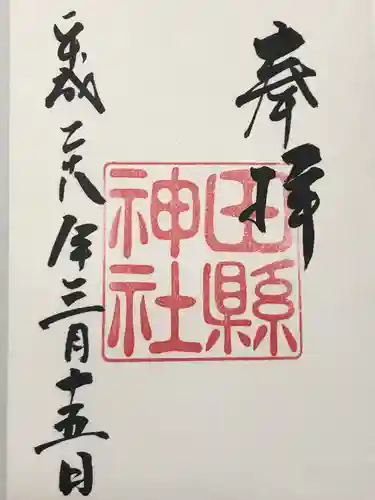 奉拝
田縣神社
平成二十八年三月十五日